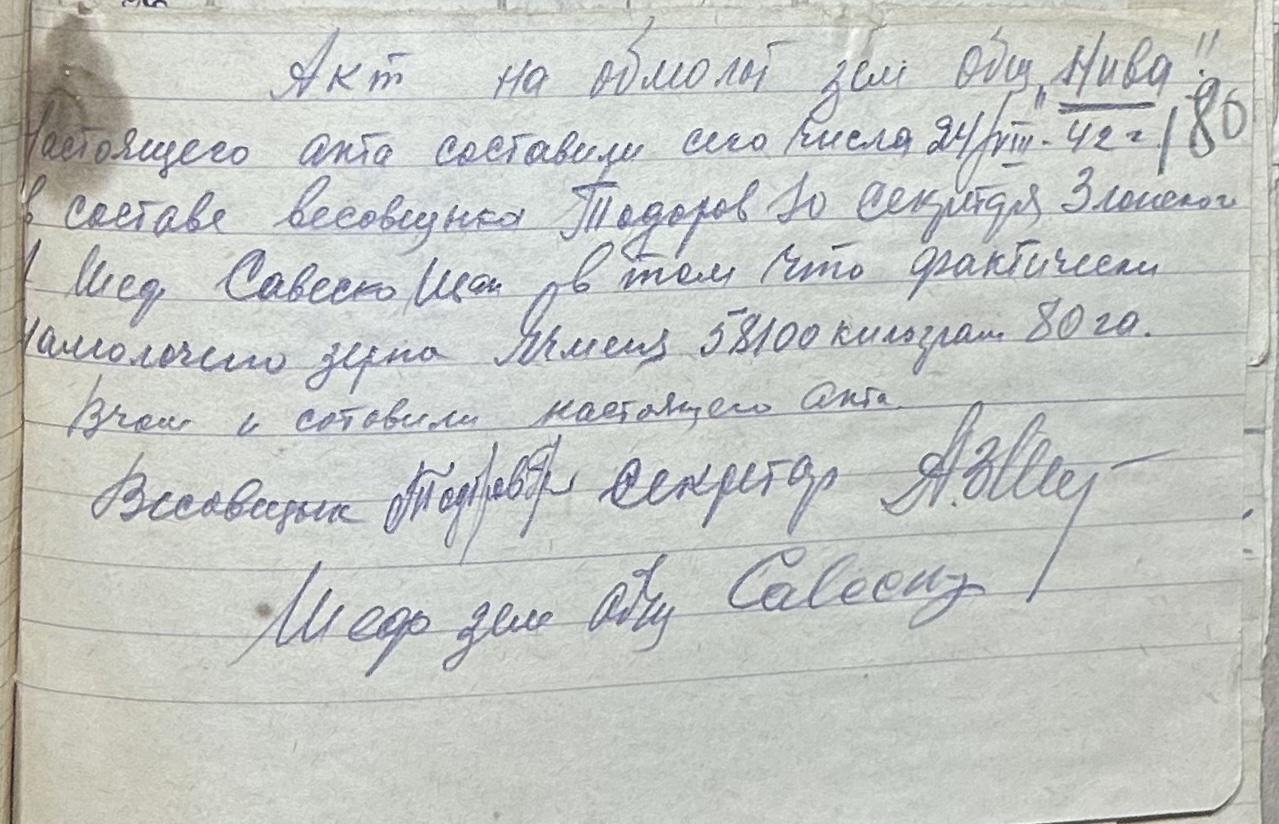 Акт на обмолот зем общ „Нива"
Настоящего акта составили сего числа 24/VIII - 42 г. 180
в составе весовщика Тодоров Ю секретаря
Шеф Савеско в том что фактически
намолочено зерна Ячменя 58100 килограм 80 га.
Вчом и сотовили настоящего акта
Весовщык Тодоров секретар
Шеф зем общ Савеско